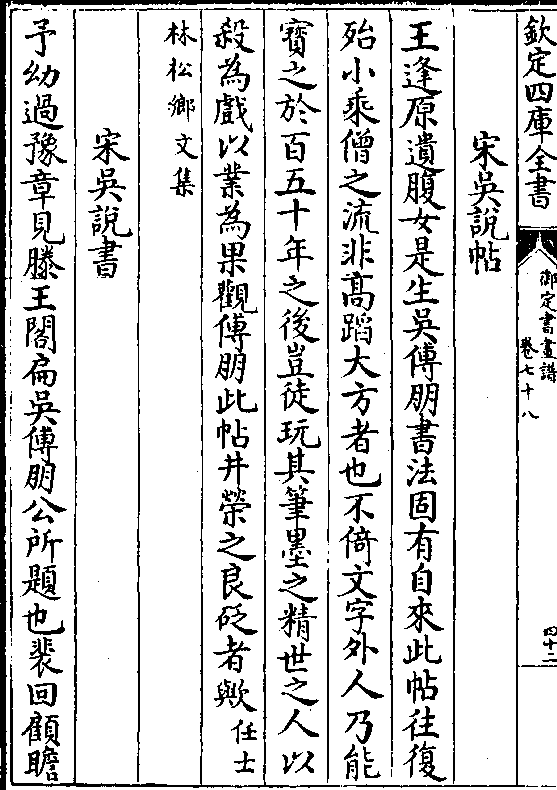 欽定四庫全書
御定書畫譜
卷七十八
四十二
宋吳說帖
王逢原遺腹女是生吳傅朋書法固有自來此帖往復
殆小乘僧之流非髙蹈大方者也不倚文字外人乃能
寳之於百五十年之後豈徒玩其筆墨之精世之人以
殺為戲以業為果觀傅朋此帖井榮之良砭者歟任士
林松鄉文集
宋吳說書
予幼過豫章見滕王閣扁吳傅朋公所題也裴回顧瞻